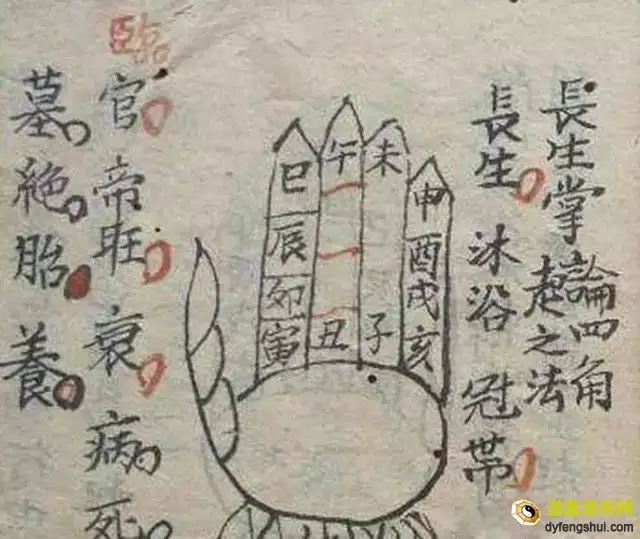 長生掌論四角
起之法
長生沐浴冠帯
巳午未申
辰酉
卯戌
寅丑子亥
臨官帝旺衰病死
墓絶胎養
dyfengshui.com